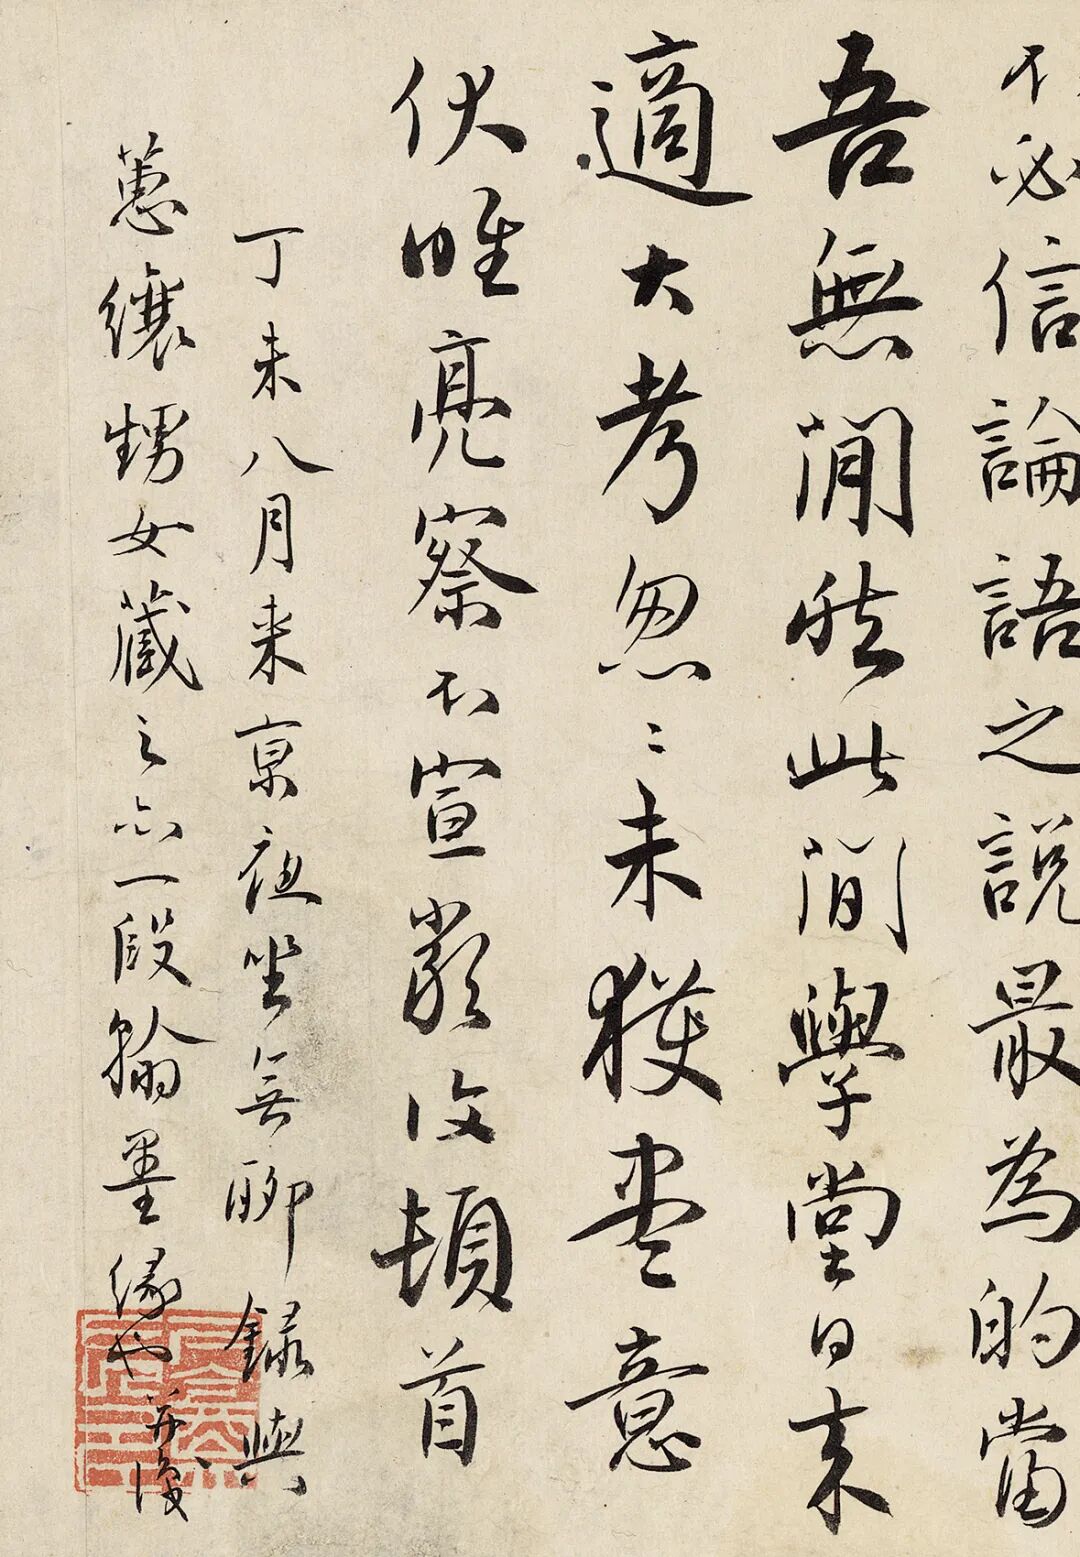 不必信論語之説最為的當
吾無間然此間學堂日来
適大考怱〻未獲盡意
伏唯亮察不宣嚴復頓首
丁未八月来京夜坐無聊錄與
蕙纕甥女藏之亦一段翰墨緣也復